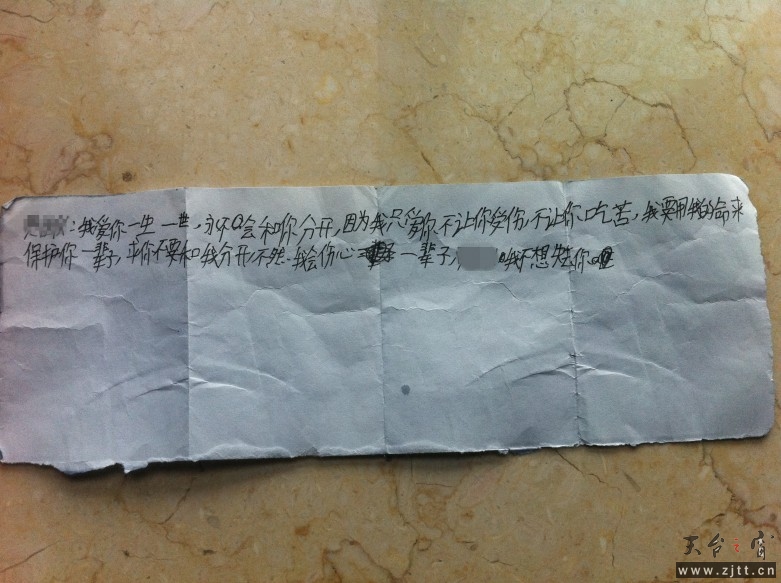 ：我爱你一生一世，永不会和你分开，因为我只爱你不让你受伤，不让你吃苦，我要用我的命来
保护你一辈子，求你不要和我分开，不然我会伤心一辈子，我不想失去你
天台之窗
www.zjtt.cn